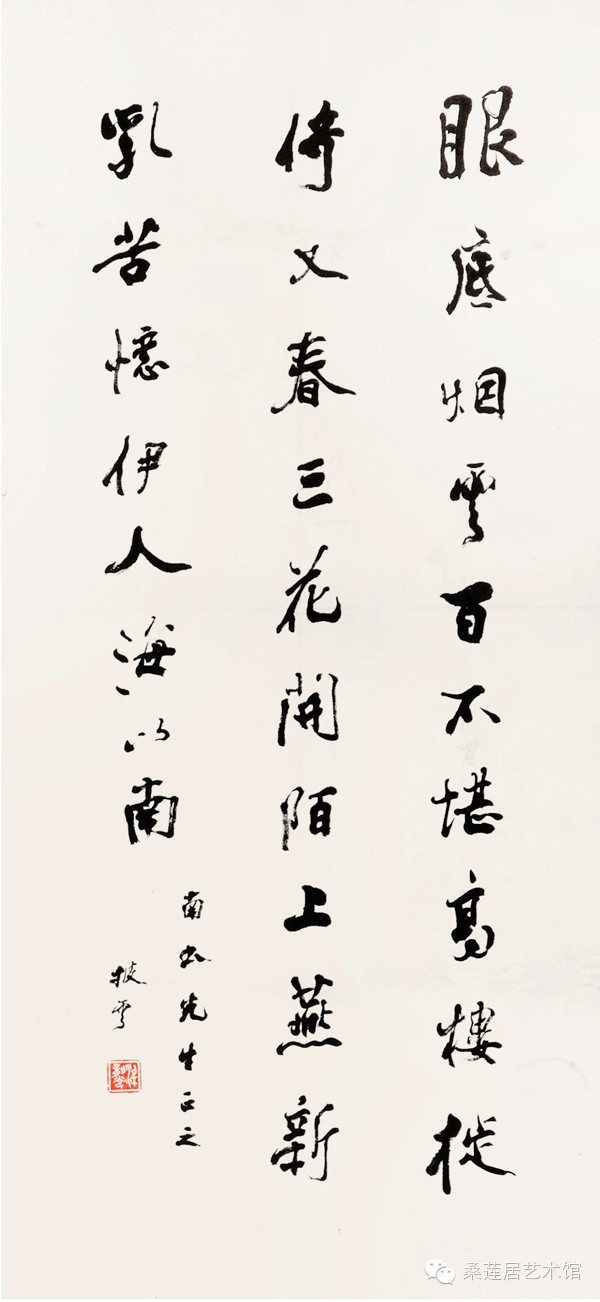 眼底烟雲百不堪高樓徙
倚又春三花開陌上燕新
乳苦憶伊人海以南
南先生正之
披雲
桑莲居艺术馆